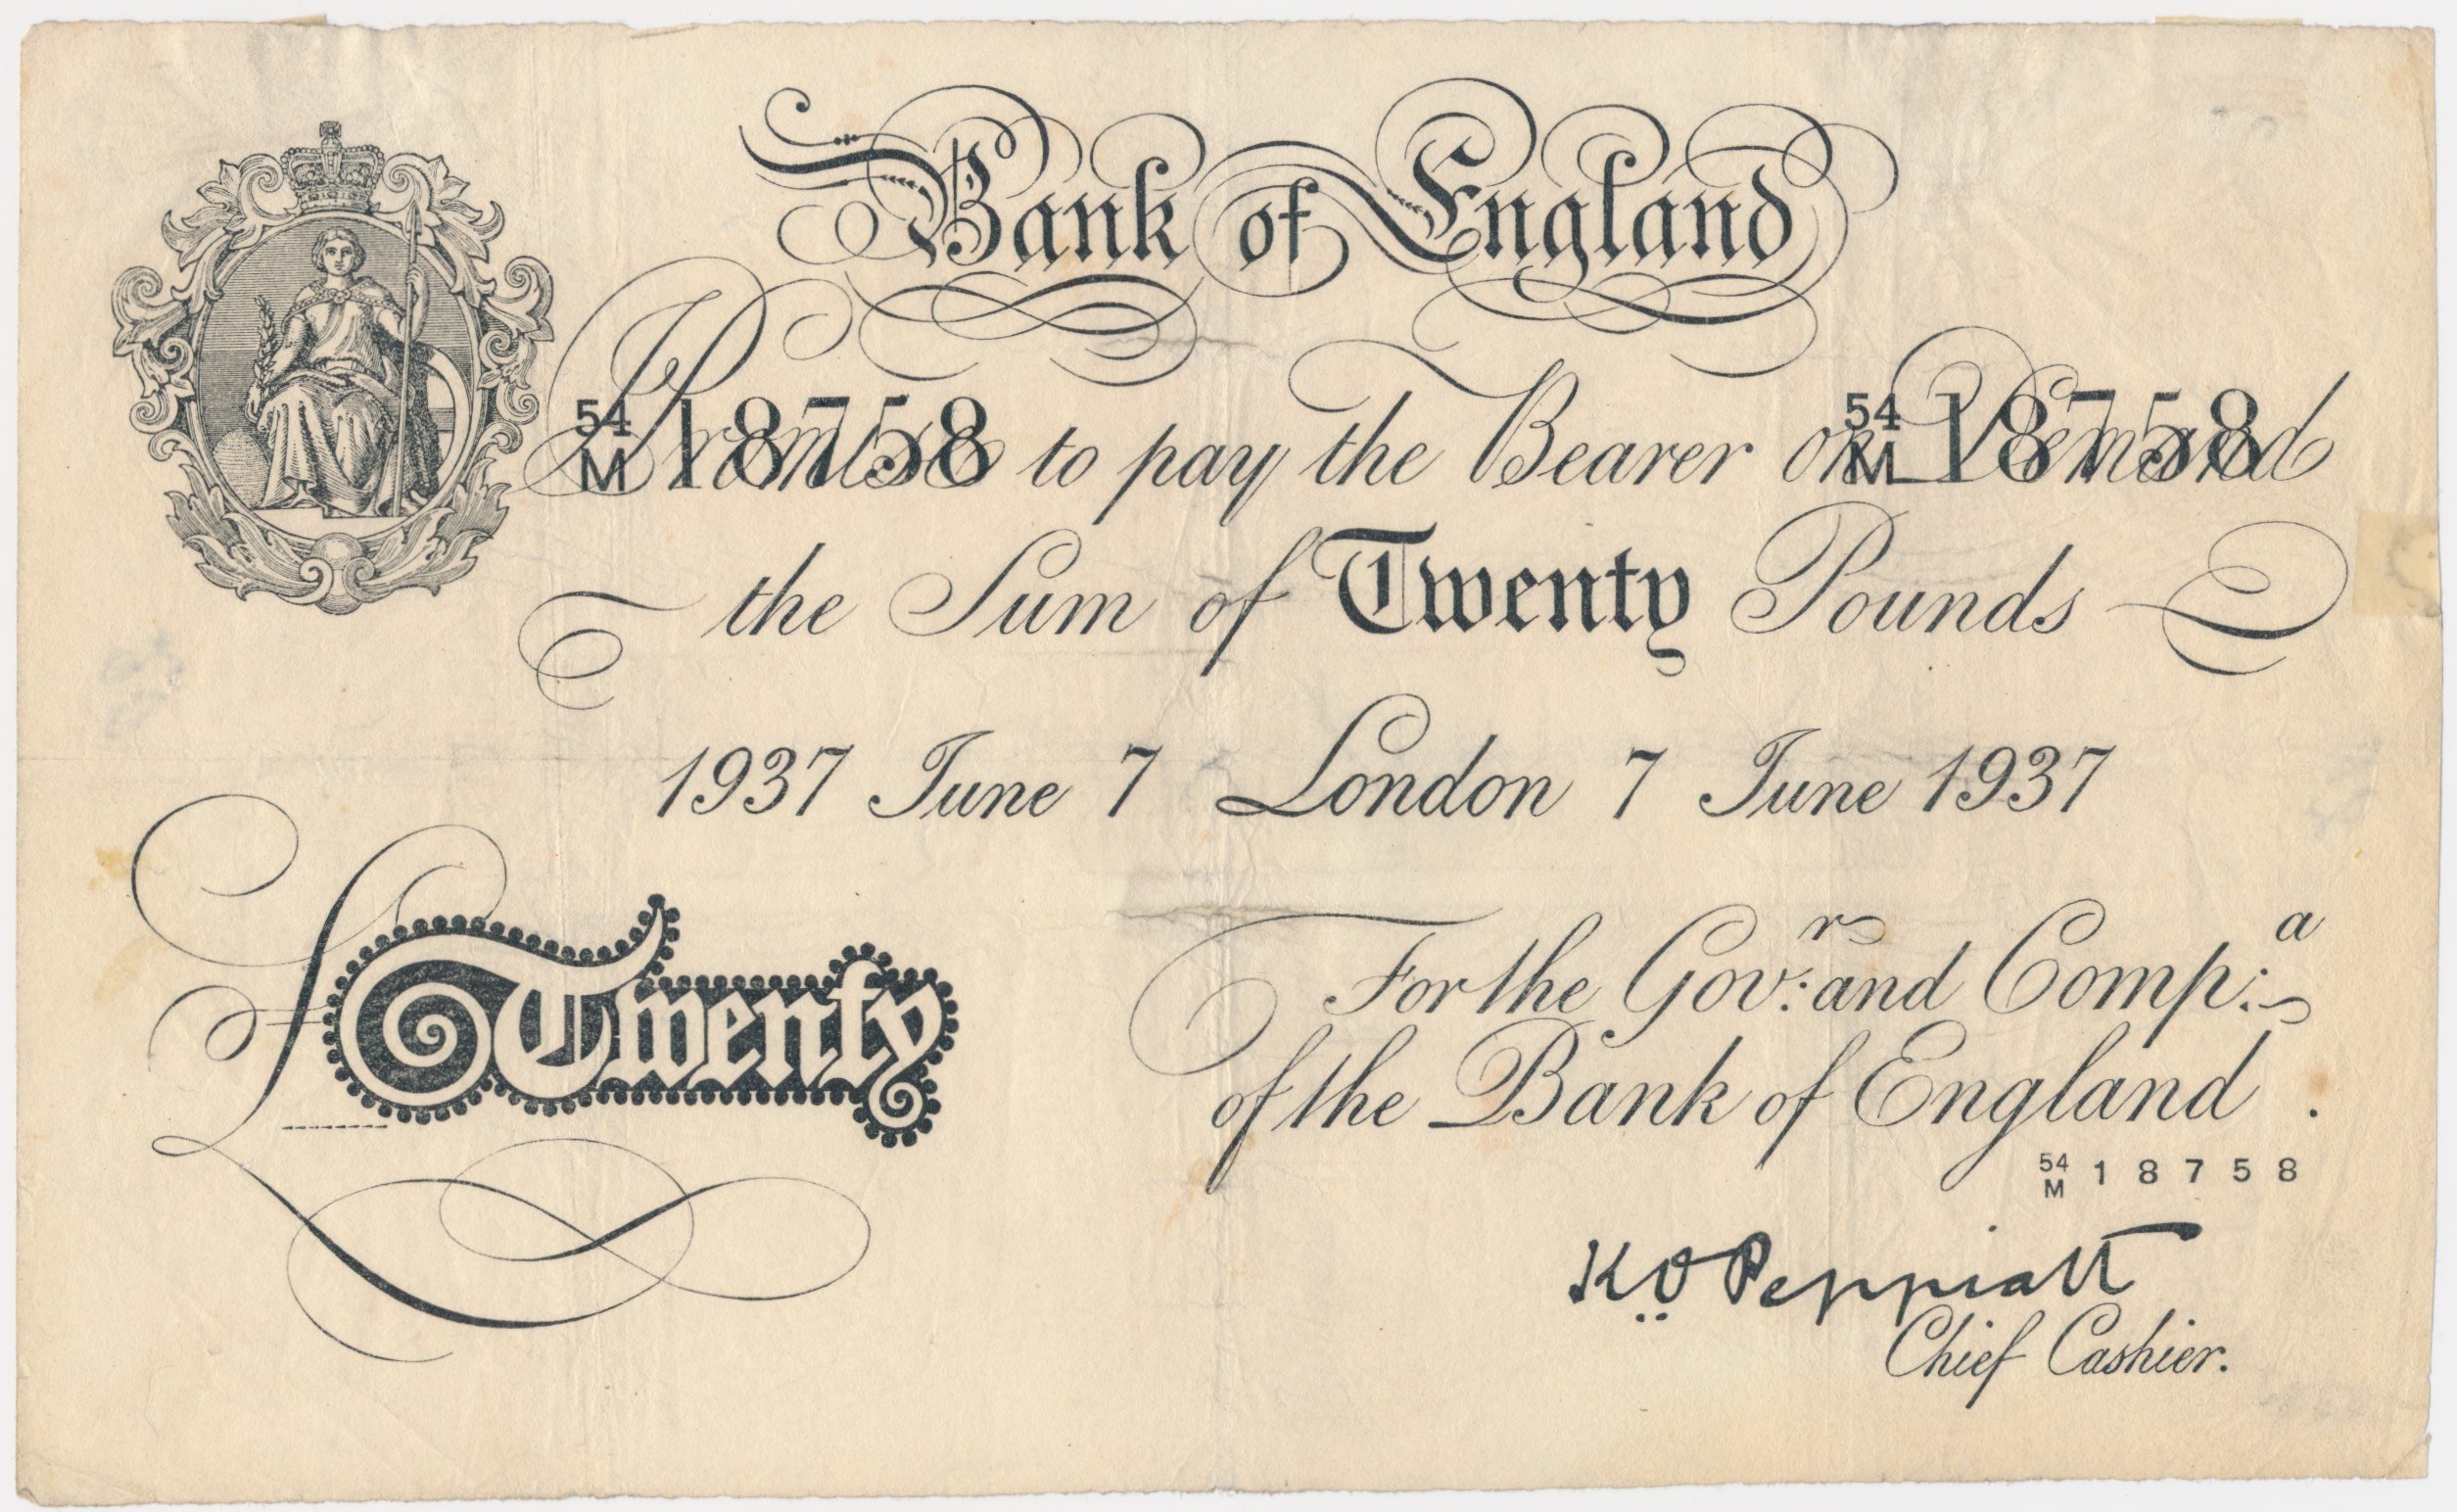 Bank of England
54/M 18758 54/M 18758
Promise to pay the Bearer on Demand
the Sum of Twenty Pounds
1937 June 7 London 7 June 1937
£Twenty
For the Gov:r and Comp:a
of the Bank of England.
54/M 18758
K.O. Peppiatt
Chief Cashier.